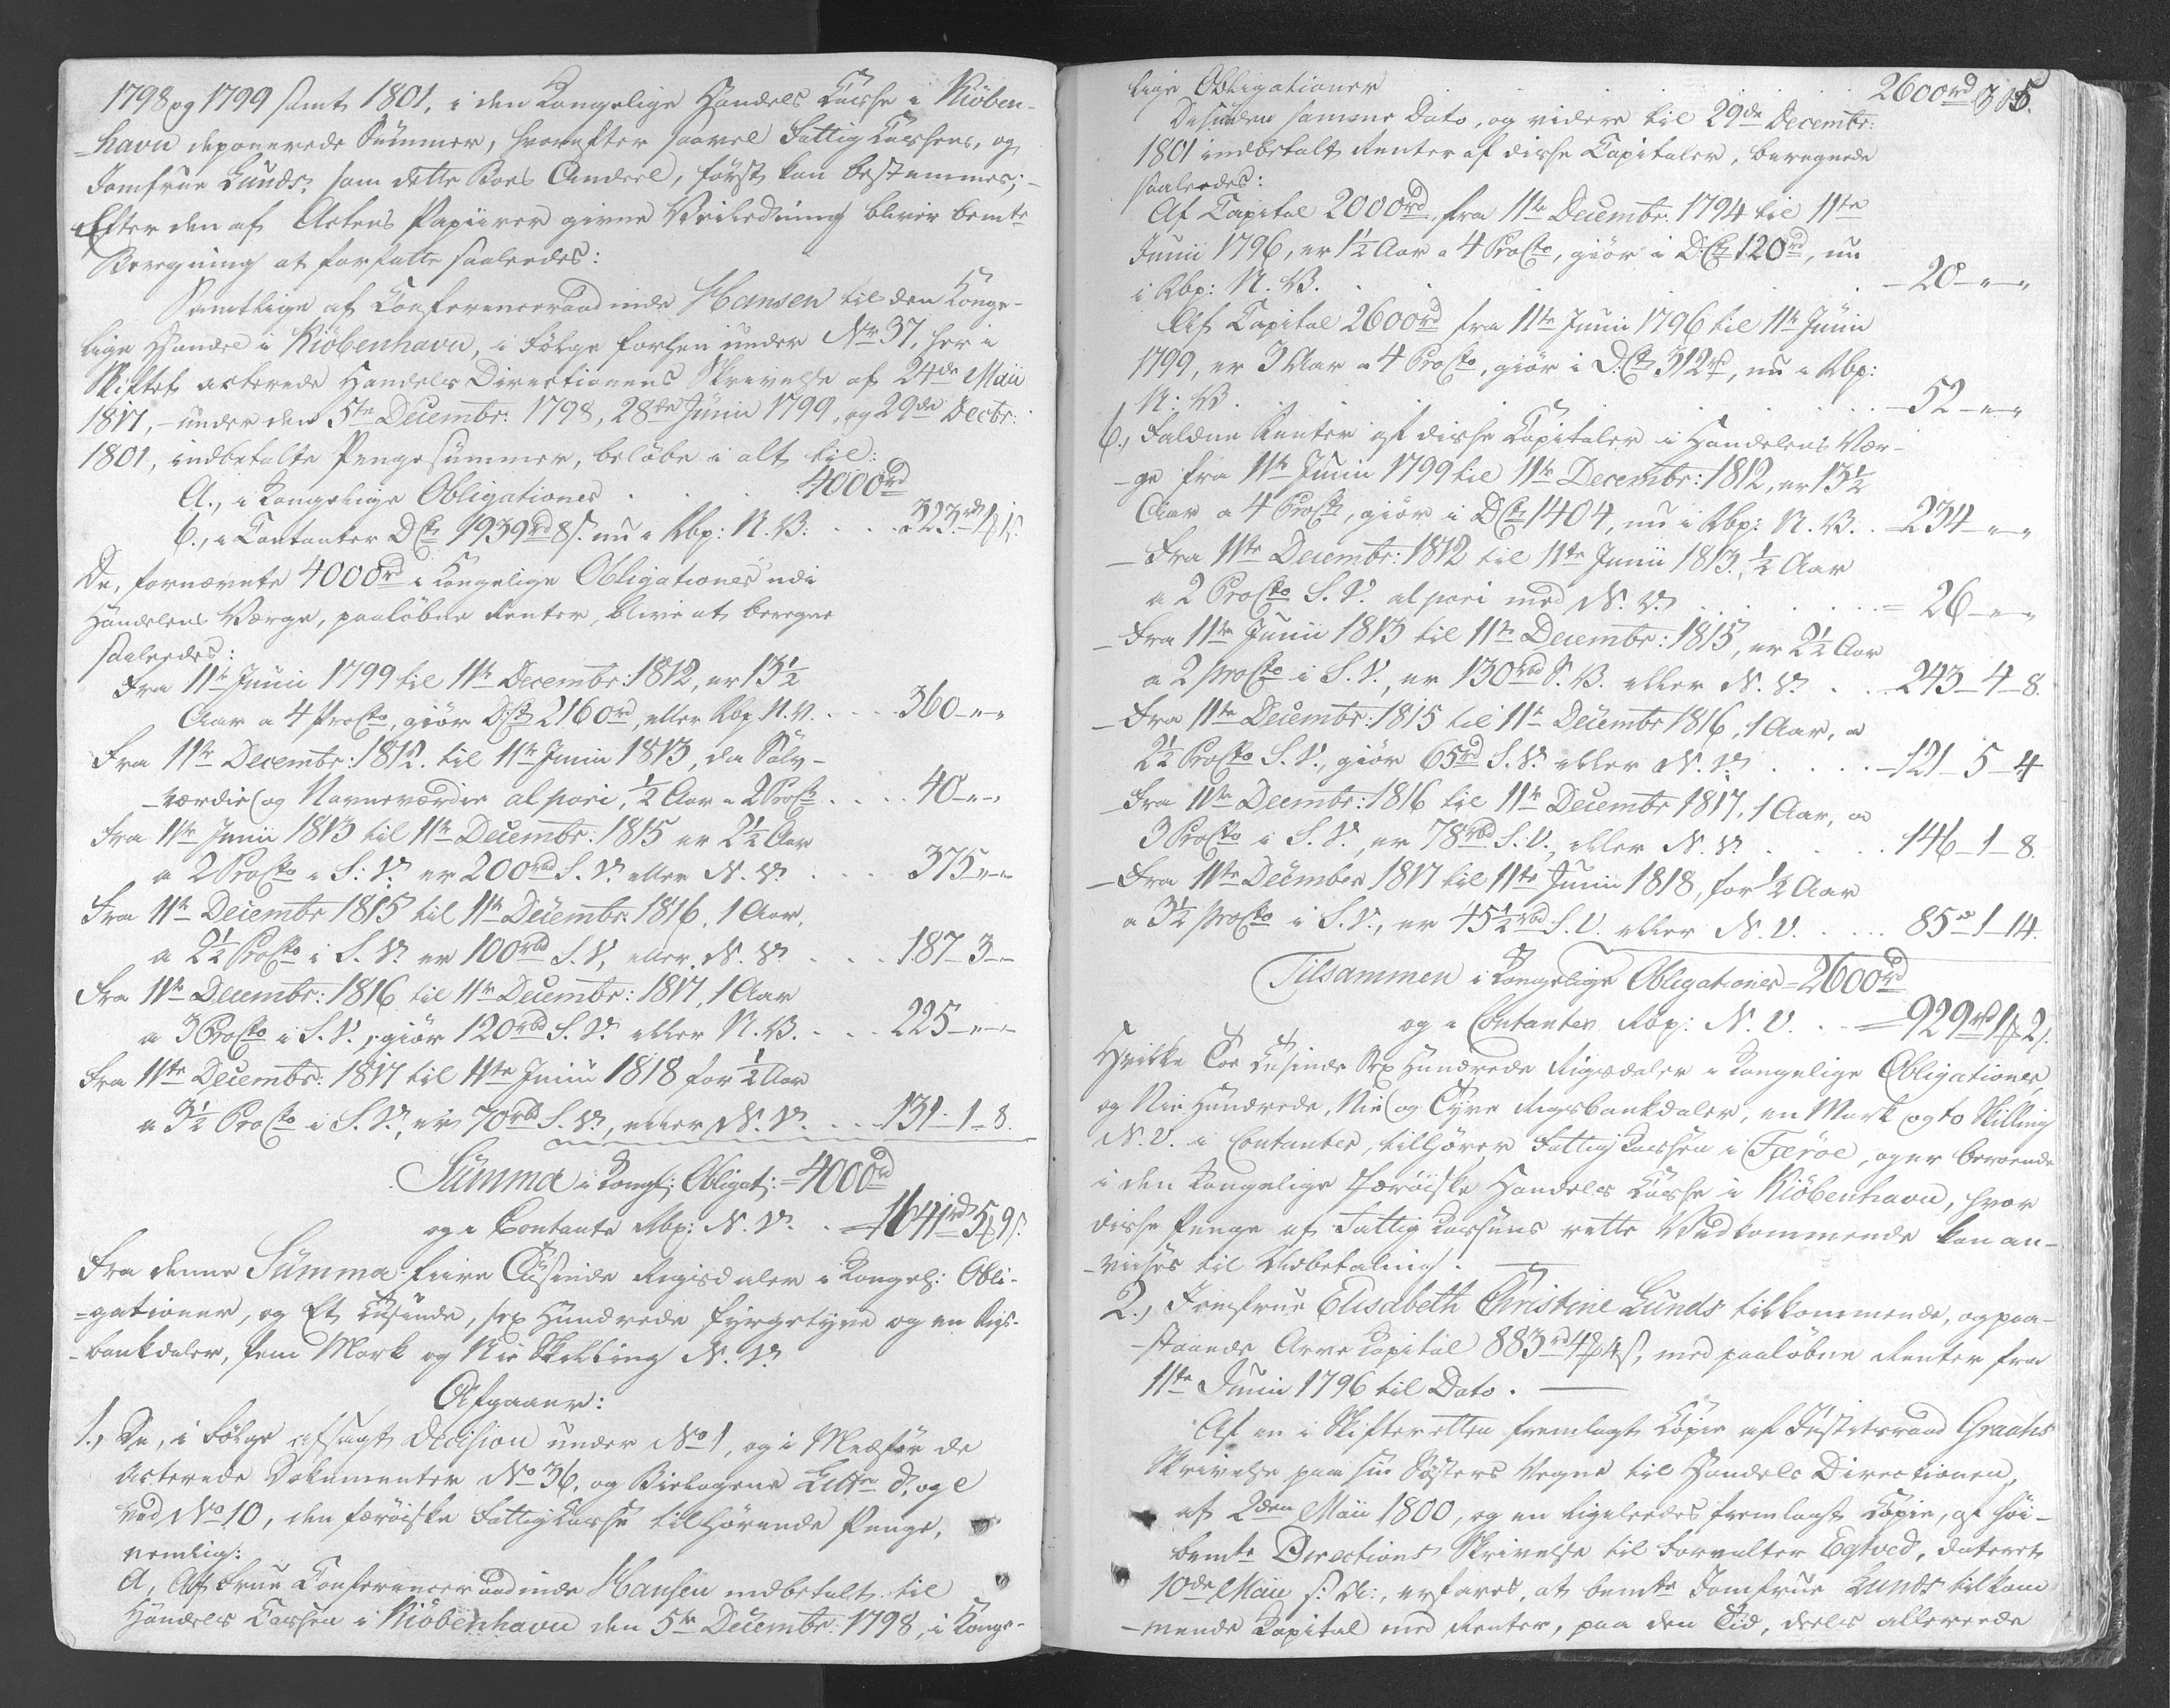 1798 og 1799 samt 1801, i den Kongelige Handels Casse i Kiöben-
-havn deponerede Summer, hvorefter saavel Fattig Cassens, og
Jomfrue Lunds, som dette Boes Andeel, först kan bestemmes; -
Efter den af Actens Papiirer givne Veiledning bliver bemte
Beregning at forfatte saaledes:
Samtlige af Conferenceraadinde Hansen til den Konge-
lige Handel i Kiöbenhavn, i Fölge forhen under No 37, her i
Skiftet acterede Handels Directionens Skrivelse af 24de Maii
1817, - under den 5te Decembr: 1798, 28de Junii 1799, og 29de Decbr:
1801, indbetalte Pengesummer, beløbe i alt til:
A., i Kongelige Obligationer . . . 4000rd
b., i Contanter DCt 1939rd 8s. nu i Rbp: N. V. . . . 323rd 1# 1s.
De, fornævnte 4000rd i Kongelige Obligationer udi
Handelens Værge, paalöbne Renter, blive at beregne
saaledes:
Fra 11te Junii 1799 til 11te Decembr: 1812, er 13½
Aar a 4 ProCto, giör DCt 2160rd, eller Rbp N. V. . . . 360 - " - "
Fra 11te Decembr: 1812. til 11te Junii 1813, da Sölv-
-værdie og Navneværdie al pari, ½ Aar a 2 ProCto . . . 40 - " - "
Fra 11te Junii 1813 til 11te Decembr: 1815 er 2½ Aar
a 2 ProCto i S: V. er 200rd S. V. eller N. V. . . . 375 - " - "
Fra 11te Decembr 1815 til 11te Decembr: 1816, 1 Aar,
a 2½ ProCto i S. V. er 100rbd S. V, eller N. V. . . . 187 - 3 - "
Fra 11te Decembr: 1816 til 11te Decembr: 1817, 1 Aar
a 3 ProCto i S. V., giör 120rbd S. V. eller N. V. . . . 225 - " - "
Fra 11te Decembr: 1817 til 11te Junii 1818 for ½ Aar
a 3½ ProCto i S. V., er 70rbd S. V., eller N. V. . . . 131 - 1 - 8.
Summa i Kongl: Obligat: = 4000rd
og i Contante Rbp: N. V. . . = 1641rd 5# 9s.
Fra denne Summa fiire Tusinde Rigisdaler i Kongel: Obli-
-gationer, og Et tusinde, sex Hundrede fyrgetyve og en Rigs-
-bankdaler, fem Mark og Nie Skilling N. V.
Afgaaer:
1., De, i Fölge afsagt Decision under No 1, og i Medför de
acterede Dokumenter No 36, og Bielagene Littr d, og e
ved No 10, den færöiske Fattig Casse tilhörende Penge,
nemlig:
A, Af Frue Conferenceraadinde Hansen indbetalt til
Handels Cassen i Kiöbenhavn den 5te Decembr: 1798, i Konge-
lige Obligationer 2600rd 305.
Desuden samme Dato, og videre til 29de Decembr:
1801 indbetalt Renter af disse Capitaler, beregnede
saaledes:
Af Capital 2000rd, fra 11te Decembr. 1794 til 11te
Junii 1796, er 1½ Aar a 4 ProCto, giör i D:Ct 120rd, nu
i Rbp: N. V. . . . - 20 - " - "
Af Capital 2600rd fra 11te Junii 1796 til 11te Junii
1799, er 3 Aar a 4 ProCto, giör i D.Ct 312rd, nu i Rbp:
N: V. . . . - 52 - " - "
b., Faldne Renter af disse Capitaler i Handelens Vær-
-ge fra 11te Junii 1799 til 11te Decembr: 1812, er 13½
Aar a 4 ProCto, giör i DCt 1404, nu i Rbp: N. V. . - 234 - " - "
- Fra 11te Decembr: 1812 til 11te Junii 1813, ½ Aar
a 2 ProCto S. V. al pari med N. V. . . . = 26 - " - "
- Fra 11te Junii 1813 til 11te Decembr: 1815, er 2½ Aar
a 2 ProCto i S. V., er 130rbd S. V. eller N. V. . . - 243 - 4 - 8.
- Fra 11te Decembr: 1815 til 11te Decembr 1816, 1 Aar, a
2½ ProCto S. V., giör 65rd S. V. eller N. V. . . . - 121 - 5 - 4
- Fra 11te Decembr: 1816 til 11te Decembr 1817, 1 Aar, a
3 ProCto i S. V., er 78rbd S. V., eller N. V. . . . 146 - 1 - 8.
- Fra 11te December 1817 til 11te Junii 1818, for ½ Aar
a 3½ ProCto i S. V., er 45½rbd S. V. eller N. V. . . . 85 - 1 - 14.
Tilsammen i Kongelige Obligationer = 2600rd
og i Contanter Rbp: N. V. . . = 929rd 1# 2s.
Hvilke Toe Tusinde Sex Hundrede Rigsdaler i Kongelige Obligationer,
og Nie Hundrede, Nie og Tyve Rigsbankdaler, en Mark og to Skilling
N. V. i Contanter, tilhörer Fattig Cassen i Færöe, og er beroende
i den Kongelige Færöiske Handels Casse i Kiöbenhavn, hvor
disse Penge af Fattig Cassens rette Vedkommende kan an-
-viises til Udbetaling.
2., Jomfrue Elisabeth Christine Lunds tilkommende, og paa-
-staaede Arve Capital 883rd 4# 4s, med paalöbne Renter fra
11te Junii 1796 til Dato.
Af en i Skifteretten fremlagt Copie af Justitsraad Graahs
Skrivelse paa sin Sösters Vegne til Handels Directionen,
af 2den Maii 1800, og en ligeledes fremlagt Copie, af höi-
bemte Directions Skrivelse til Forvalter Egtved, dateret
10de Maii s: A:, erfares, at bemte Jomfrue Lunds tilkom-
-mende Kapital med Renter, paa den Tid, deels allereede